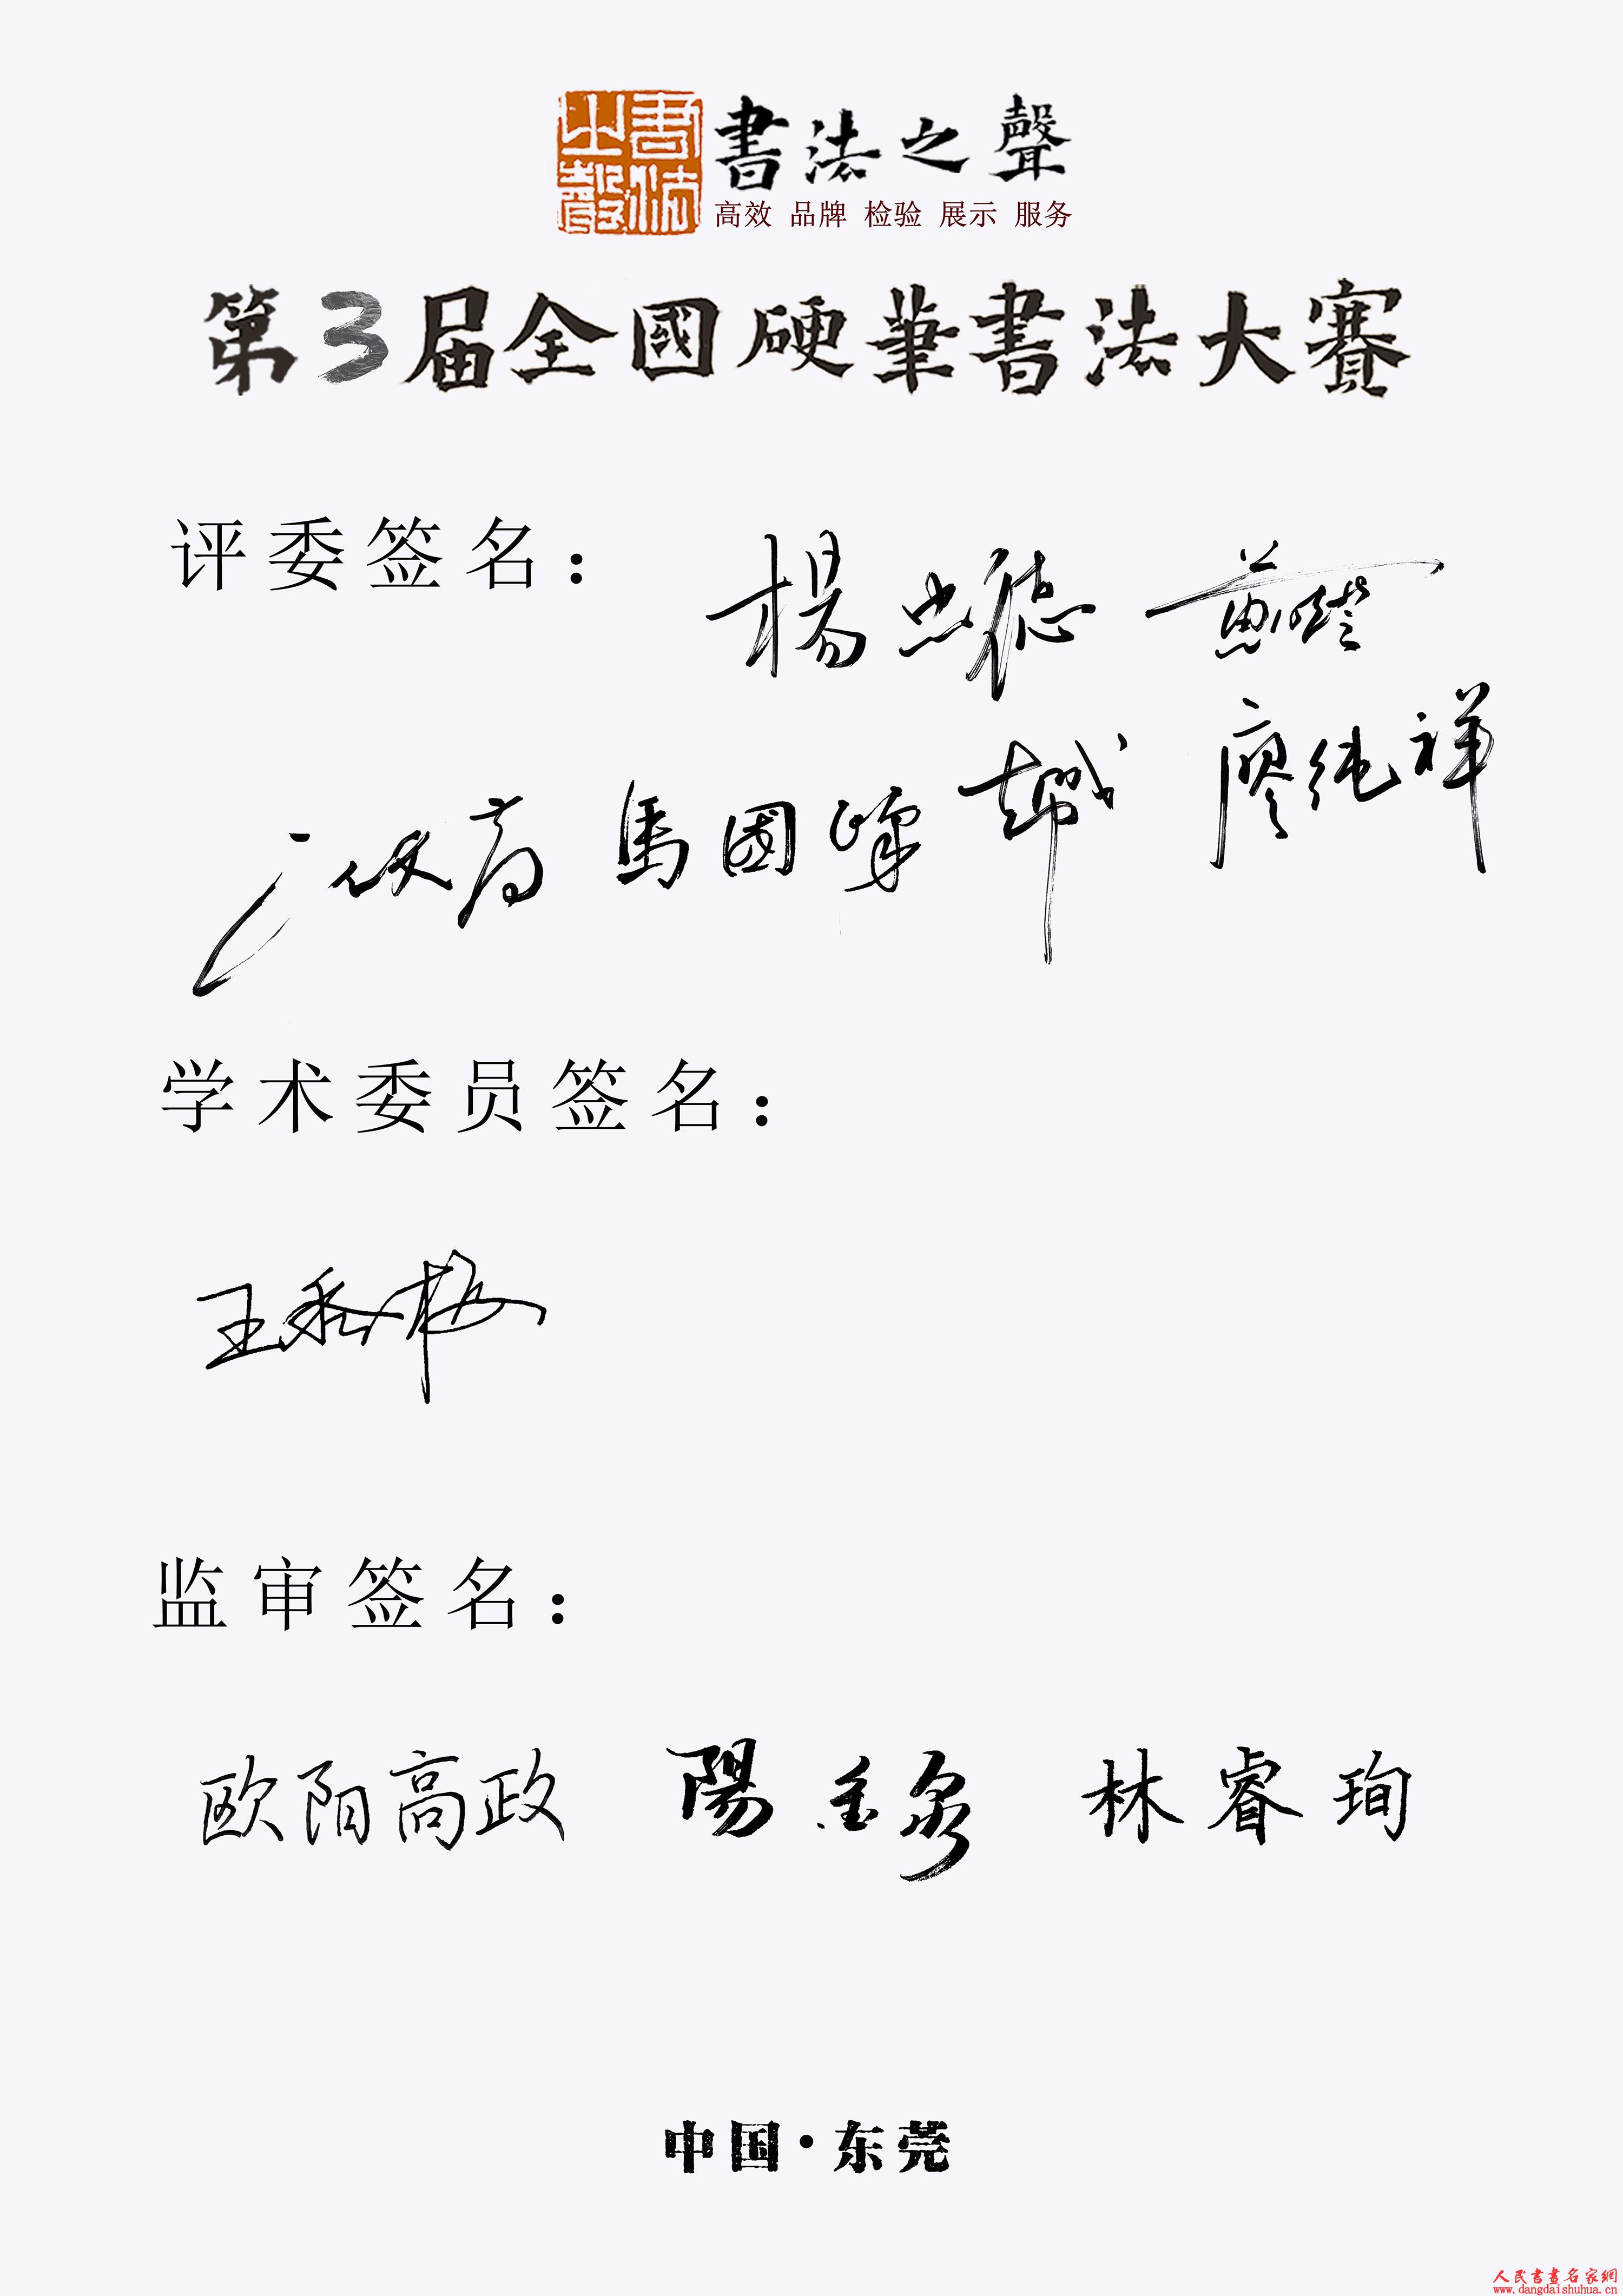 書法之聲
書法之聲
高效 品牌 检验 展示 服务
第3届全國硬筆書法大賽
评委签名：
楊忠德
馬國峰 廖纯祥
学术委员签名：
王香梅
监审签名：
欧阳高政 陽金泉 林睿珣
中国·东莞
人民書畫名家網
www.dangdaishuhua.cn